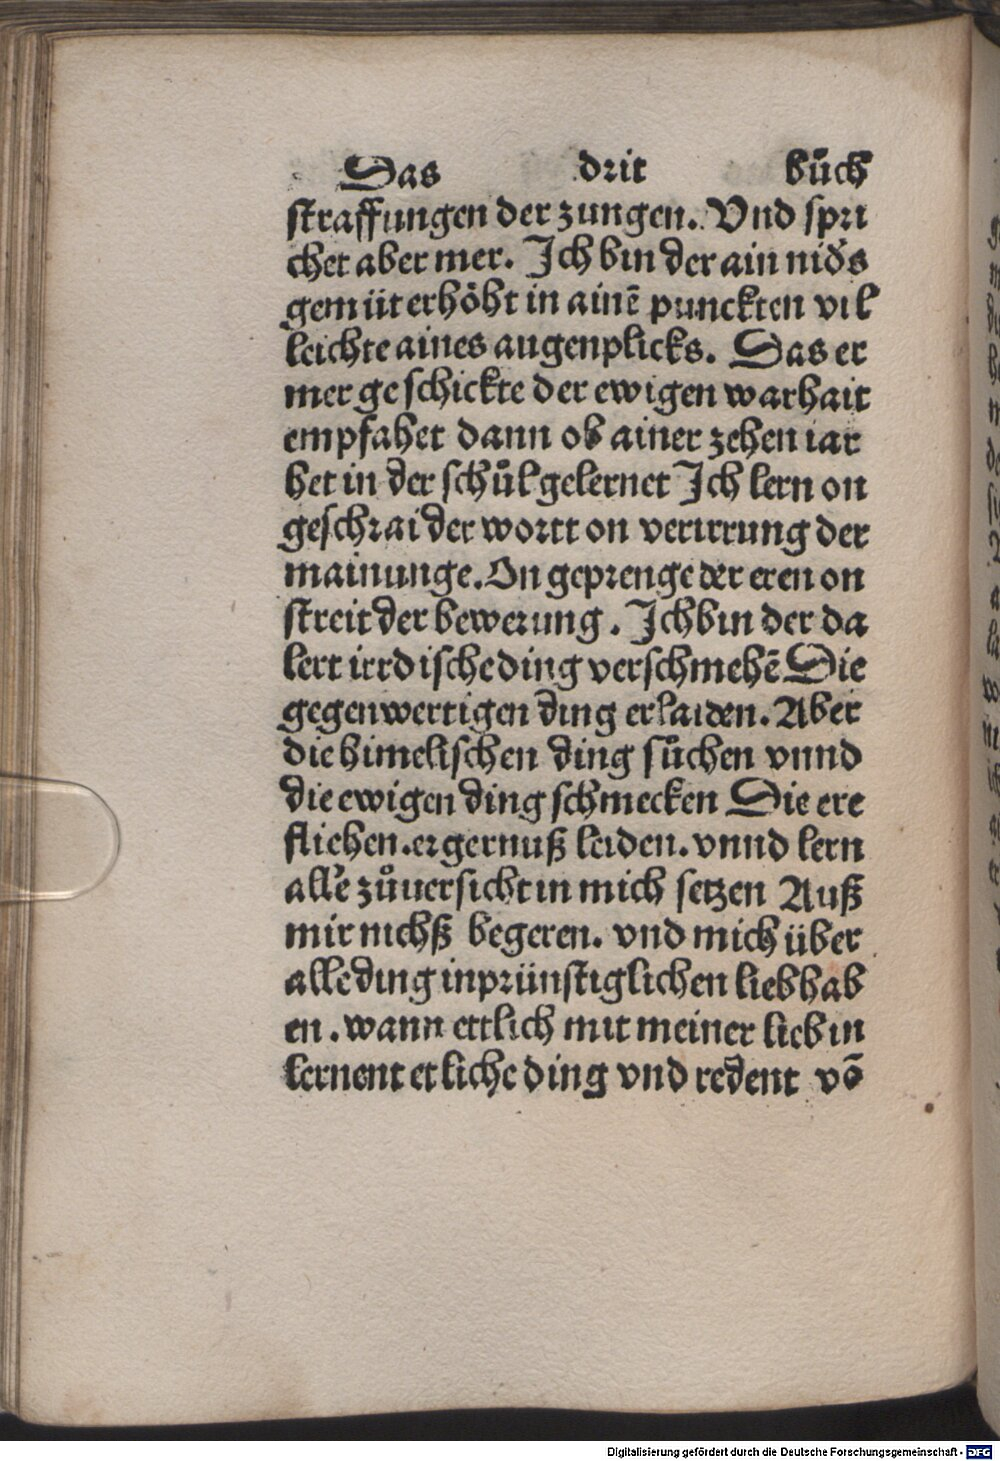 Das drit bůch
straffungen der zungen. Vnd spri
chet aber mer. Ich bin der ain nid's
gemüt erhöht in ainē punckten vil
leichte aines augenplicks. Das er
mer geschickte der ewigen warhait
empfahet dann ob ainer zehen iar
het in der schůl gelernet Ich lern on
geschrai der wortt on verirrung der
mainunge. On geprenge der eren on
streit der bewerung. Ich bin der da
lert irrdische ding verschmehē Die
gegenwertigen ding erlaiden. Aber
die himelischen ding sůchen vnnd
die ewigen ding schmecken Die ere
fliehen. ergernuß leiden. vnnd lern
alle zůuersicht in mich setzen Auß
mir nichß begeren. vnd mich über
alle ding inprünstiglichen liebhab
en. wann ettlich mit meiner lieb in
lernent etliche ding vnd redent vō
Digitalisierung gefördert durch die Deutsche Forschungsgemeinschaft - DFG